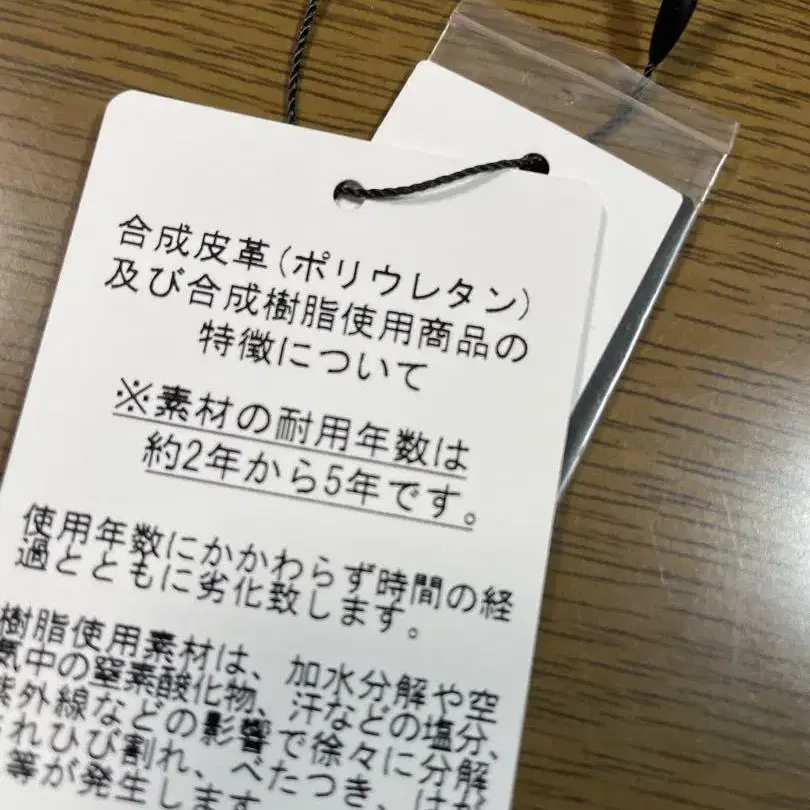 合成皮革(ポリウレタン)
及び合成樹脂使用商品の
特徴について
※素材の耐用年数は
約2年から5年です。
使用年数にかかわらず時間の経
過とともに劣化致します。
樹脂使用素材は、加水分解や空
気中の窒素酸化物、汗などの塩分、
紫外線などの影響で徐々に分解
れひび割れ、べたつき、はが
等が発生します